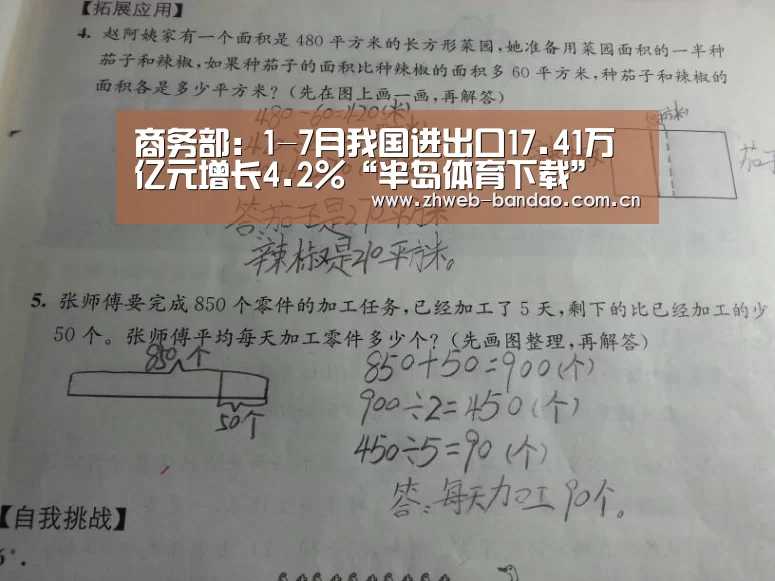 【拓展应用】
4. 赵阿姨家有一个面积是 480 平方米的长方形菜园,她准备用菜园面积的一半种
茄子和辣椒,如果种茄子的面积比种辣椒的面积多 60 平方米,种茄子和辣椒的
面积各是多少平方米?(先在图上画一画,再解答)
480-60=420(米)
商务部：1-7月我国进出口17.41万
亿元增长4.2%“半岛体育下载”
www.zhweb-bandao.com.cn
茄子
答:茄子是270平方米
辣椒是210平方米。
5. 张师傅要完成 850 个零件的加工任务,已经加工了 5 天,剩下的比已经加工的少
50 个。张师傅平均每天加工零件多少个?(先画图整理,再解答)
850个
50个
850+50=900(个)
900÷2=450(个)
450÷5=90(个)
答:每天加工90个。
【自我挑战】
6*.